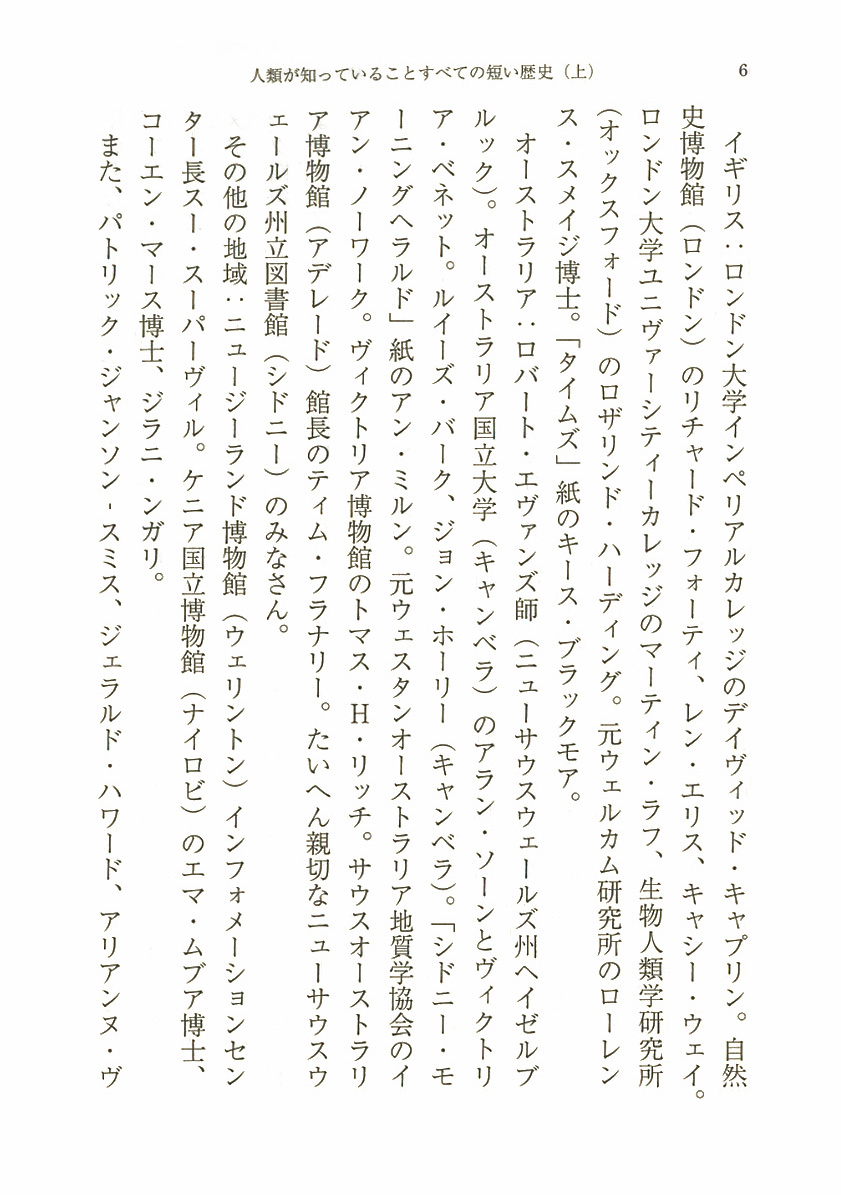 人類が知っていることすべての短い歴史（上）
6
イギリス：ロンドン大学インペリアルカレッジのデイヴィッド・キャプリン。自然
史博物館（ロンドン）のリチャード・フォーティ、レン・エリス、キャシー・ウェイ。
ロンドン大学ユニヴァーシティーカレッジのマーティン・ラフ、生物人類学研究所
（オックスフォード）のロザリンド・ハーディング。元ウェルカム研究所のローレン
ス・スメイジ博士。「タイムズ」紙のキース・ブラックモア。
オーストラリア：ロバート・エヴァンズ師（ニューサウスウェールズ州ヘイゼルブ
ルック）。オーストラリア国立大学（キャンベラ）のアラン・ソーンとヴィクトリ
ア・ベネット。ルイーズ・バーク、ジョン・ホーリー（キャンベラ）。「シドニー・モ
ーニングヘラルド」紙のアン・ミルン。元ウェスタンオーストラリア地質学協会のイ
アン・ノーワーク。ヴィクトリア博物館のトマス・H・リッチ。サウスオーストラリ
ア博物館（アデレード）館長のティム・フラナリー。たいへん親切なニューサウスウ
ェールズ州立図書館（シドニー）のみなさん。
その他の地域：ニュージーランド博物館（ウェリントン）インフォメーションセン
ター長スー・スーパーヴィル。ケニア国立博物館（ナイロビ）のエマ・ムブア博士、
コーエン・マース博士、ジラニ・ンガリ。
また、パトリック・ジャンソン-スミス、ジェラルド・ハワード、アリアンヌ・ヴ